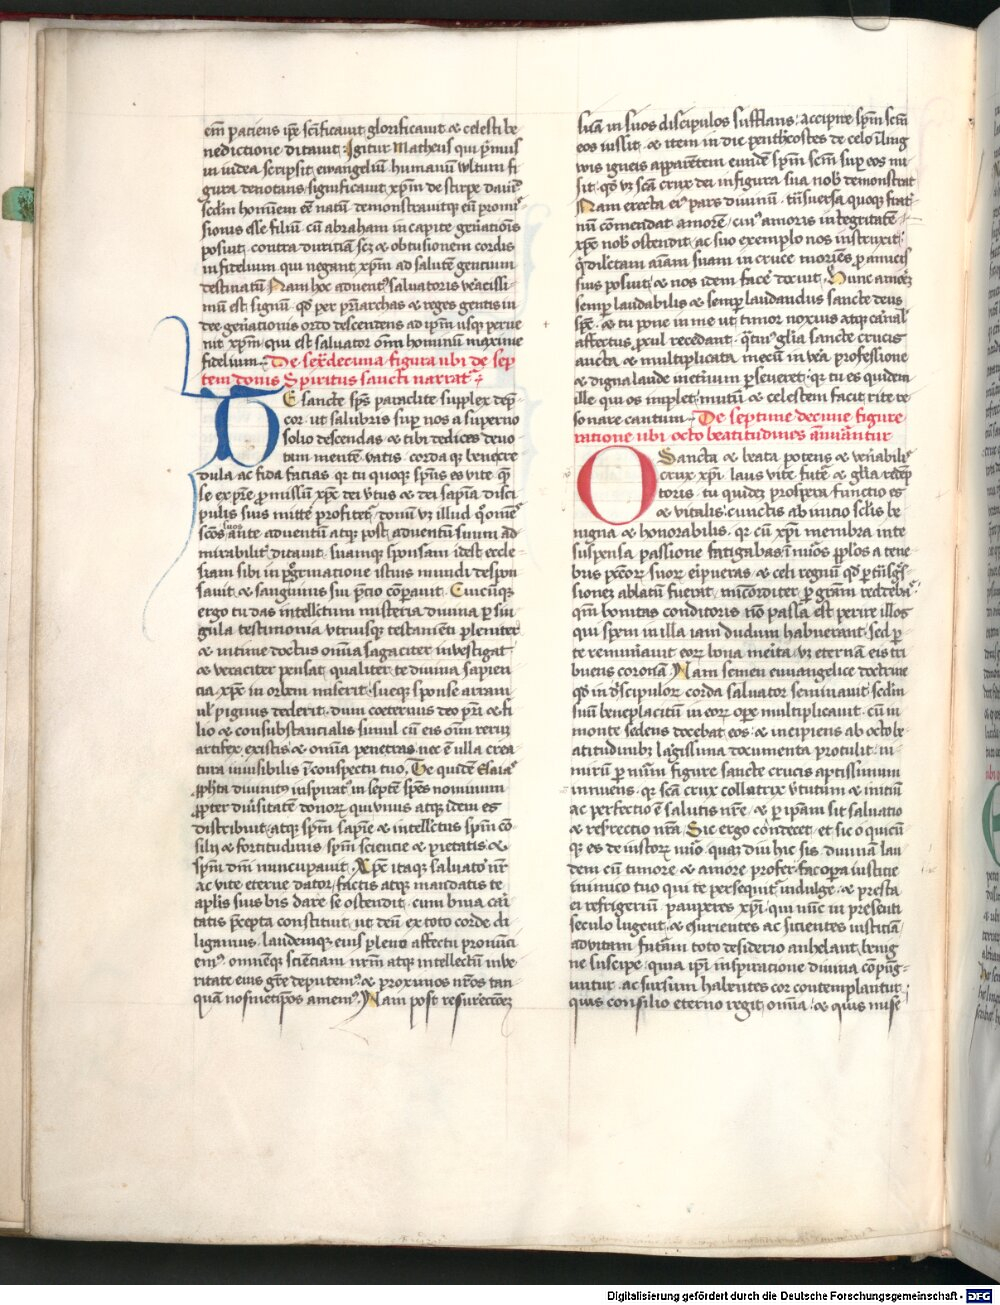 em̄ paciens ip̄e sc̄ificauit glorificauit ⁊ celesti be
nedictione ditauit. Igitur Matheus qui p̄mus
in iudea scripsit ewangeliū humanū vultum fi
gura denotans significauit xp̄m de stirpe dauid
scd̄m hominem eē natū demonstrauitque eū promis
sionis esse filiū cū abraham in capite gn̄atiōis
posuit contra duritiā scꝫ ⁊ obtusionem cordis
infidelium qui negant xp̄m ad salutē gentium
destinatū Nam hoc aduentꝰ saluatoris veracissi
mū est signū qd̄ per pr̄iarchas ⁊ reges gentis iu
dee gn̄ationis ordo descendens ad ip̄m usqꝫ perue
nit xp̄m qui est saluator om̄ hominū maxime
fidelium. De sexdecima figura ubi de sep
tem donis Spiritus sancti narrat᷑
DE sancte sp̄s paraclite supplex dep̄
cor ut salubris sup̄ nos a superno
solio descendas ⁊ tibi dedices deuo
tum mentē vatis corda qꝫ benecre
dula ac fida facias qꝫ tu quoqꝫ sp̄us es vite q̄
se exp̄re ꝓmissū xp̄c dei v̄tus ⁊ dei sap̄ia disci
pulis suis mitte ꝓfitet᷑ donū vꝫ illud q̄ om̄es
sc̄os suos ante aduentū atqꝫ post aduentū suum ad
mirabilit᷑ ditauit suamqꝫ sponsam idest eccle
siam sibi in pegrinatione istius mundi despon
sauit ⁊ sanguinis sui p̄cio cōparauit Cuicūqꝫ
ergo tu das intellectum misteria diuina per sin
gula testimonia vtriusqꝫ testamēti pleniter
⁊ intime doctus om̄ia sagaciter inuestigat
⁊ veraciter pensat qualiter te diuina sapien
cia xp̄c in orbem miserit sueqꝫ sponse arram
ul᷑ pignus dederit dum coeternus deo pr̄i ⁊ fi
lio ⁊ consubstancialis simul cū eis om̄ rerū
artifex existis ⁊ om̄ia penetras nec ē ulla crea
tura inuisibilis ī conspectu tuo. De quidē Esaias
ꝓph̄ta diuinitꝰ inspiratꝰ in septē sp̄es nominum
ꝓpter diuisitatē donoꝝ qui vnus atqꝫ idem es
distribuit atqꝫ sp̄m sap̄ie ⁊ intellectus sp̄m cō
silii ⁊ fortitudinis sp̄m sciencie ⁊ pietatis ⁊
sp̄m dn̄i nuncupauit. Xp̄c itaqꝫ saluator nr̄
ac vite eterne dator factis atqꝫ mandatis te
aplis suis bis dare se ostendit cum bina cari
tatis p̄cepta constituit ut deū ex toto corde di
ligamus laudemqꝫ eius pleno affectu pronūci
emꝰ omnēqꝫ sciēciam nr̄m atqꝫ intellectū in ve
ritate eius gr̄e deputemꝰ ⁊ proximos nr̄os tan
quā nosmetip̄os amemꝰ. Nam post resurrectōeꝫ
suā in suos discipulos sufflans accipite sp̄m sc̄m
eos iussit ⁊ item in die penthecostes de celo ī ling
wis igneis apparētem eundē sp̄m sc̄m sup̄ eos mi
sit qd̄ vꝫ sc̄a crux dei in figura sua nob̄ demonstrat
Nam erecta eiꝰ pars diuinū tn̄suersa quoqꝫ frat̄
nū cōmendat amorē cuiꝰ amoris integritatē
xp̄c nob̄ ostendit ac suo exemplo nos instruxit
qd̄ dilectam aīam suam in cruce moriēs ꝓ amicis
suis posuit ⁊ nos idem facē docuit Hunc amoreꝫ
semp̄ laudabilis ⁊ semp̄ laudandus sancte deus
sp̄c ⁊ tu pone in me ut timor noxius atqꝫ carnal̄
affectus ꝓcul recedant qͣtiꝰ gl̄ia sancte crucis
aucta ⁊ multiplicata mecū in v̄a professione
⁊ digna laude metrium ꝑseueret qꝫ tu es quidem
ille qui os implet mutū ⁊ celestem facit rite re
sonare cantum. De septime decime figure
ratione ubi octo beatitudines ān̄mantur
O Sancta ⁊ beata potens ⁊ ven̄abil̄
crux xp̄i laus vite fut̄e ⁊ gl̄ia redēp
toris tu quideꝫ prospera functio es
⁊ vitalis cunctis ab inicio sc̄lis be
nigna ⁊ honorabilis qꝫ cū xp̄i membra inte
suspensa passione fatigabas ī mūos pplos a tene
bris pctōꝝ suoꝝ eripueras ⁊ celi regnū qd̄ ꝑ tn̄sgͣs
sionem ablatū fuerat mīcorditer ꝑ gram reddebas
qm̄ bonitas conditoris nō passa est perire illos
qui spem in illa iam dudum habuerant sed ꝑ
te remuniauit eoꝝ bona merita vꝫ eternā eis tri
buens coronā Nam semen euuangelice doctrine
qd̄ in discipuloꝝ corda saluator seminauit scd̄m
suū beneplacitū in eoꝝ ope multiplicauit cū in
monte sedens docebat eos ⁊ incipiens ab octo be
atitudinibꝫ largissima documenta protulit ni
mirū ꝑ nūm figure sancte crucis aptissimum
innuens qꝫ sc̄a crux collatrix v̄tutum ⁊ initiū
ac perfectio ē salutis nr̄e ⁊ ꝑ ipam sit saluatio
⁊ refectio nr̄a Sic ergo condecet et sic o quicū
qꝫ es deinstoꝝ nūo quaꝫ diu hic sis diuinā lau
dem cū timore ⁊ amore profer fac opera iusticie
inimico tuo qui te persequit᷑ indulge ⁊ presta
ei refrigeriū pauperes xp̄i qui nūc in presenti
seculo lugent ⁊ esurientes ac sitientes iusticiā
ad vitam futūam toto desiderio anhelant benig
ne suscipe quia ip̄i inspiratione diuina cōpūg
untur ac sursum habentes cor contemplantur
quis consilio eterno regit om̄ia ⁊ quis mise
Digitalisierung gefördert durch die Deutsche Forschungsgemeinschaft - DFG